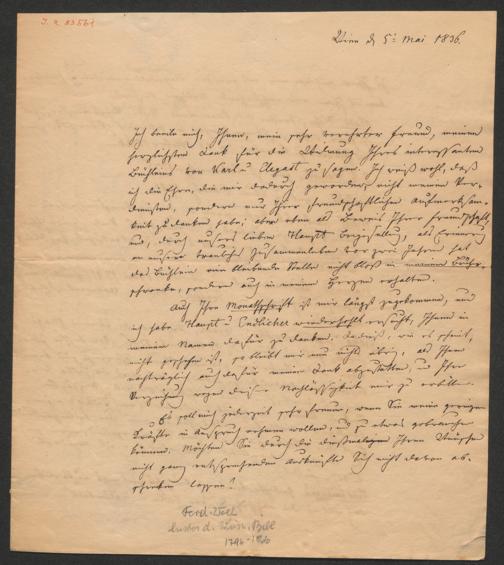 I. N. 83561
Wien d. 5: Mai 1836.
Ich beeile mich, Ihnen, mein sehr verehrter Freund, meinen
herzlichsten Dank für die Widmung Ihres interessanten
Büchleins von Karl u Elegast zu sagen. Ich weiß wohl, daß
ich die Ehre, die mir dadurch geworden, nicht meinem Ver-
dienste, sondern nur Ihrer freundschaftlichen Aufmerksam-
keit zu danken habe; aber eben als Beweis Ihrer Freundschaft,
und, durch unsern lieben Haupt, als Erinnerung
an unser trauliches Zusammenleben vor zwei Jahren hat
das Büchlein eine bleibende Stelle nicht bloß in meinem Bücher-
schranke, sondern auch in meinem Herzen erhalten.
Auch Ihre Monatschrift ist mir längst zugekommen, und
ich habe Haupt u Endlicher wiederhohlt ersucht, Ihnen in
meinem Namen dafür zu danken. Da dieß, wie es scheint,
nicht geschehen ist, so bleibt mir nun nichts übrig, als Ihnen
nachträglich auch dafür meinen Dank abzustatten, u Ihre
Verzeihung wegen dieser Nachlässigkeit mir zu erbitten.
Es soll mich jederzeit sehr freuen, wenn Sie meine geringen
Kräfte in Anspruch nehmen wollen, und zu etwas gebrauchen
können. Möchten Sie durch die dießmaligen Ihren Wünschen
nicht ganz entsprechenden Auskünfte Sich nicht davon ab-
schrecken lassen!
Ferd. Wolf
1796-1866